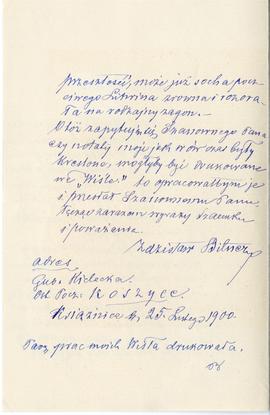 przeszłości, może już socha pocz-
ciwego Litwina zrównа i rozora-
ła na rodzajny zagon.
Otóż zapytuję Szanownego Pana
czy notaty moje, jak równo były
kreślone, mogłyby być drukowane
we „Wiśle" to opracowałbym je
i przesłał Szanownemu Panu.
Łączę zarazem wyrazy szacunku
i poważania.
Zdzisław
adres
Gub. Kielecka.
St. Pocz. Koszyce.
Książnice d. 25 Lutego 1900.
prac moich Wisła drukowała.